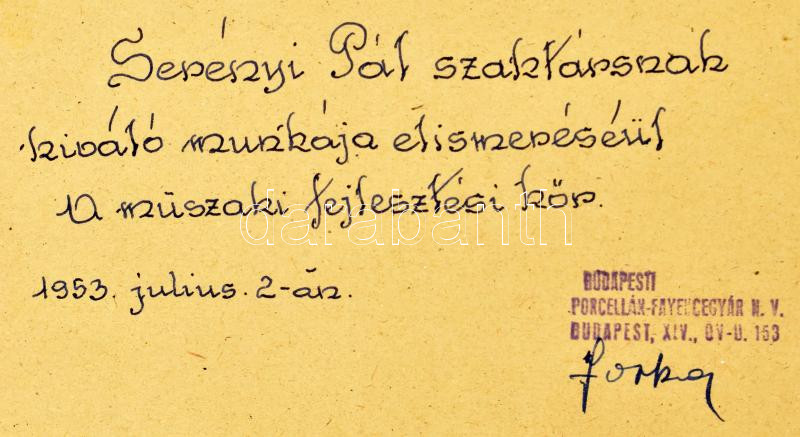 Serényi Pál szaktársnak
kiváló munkája elismeréséül
A müszaki fejlesztési kör.
darabanth
1953. julius. 2-án.
BUDAPESTI
PORCELLÁN-FAYENCEGYÁR N. V.
BUDAPEST, XIV., ÖV-U. 153